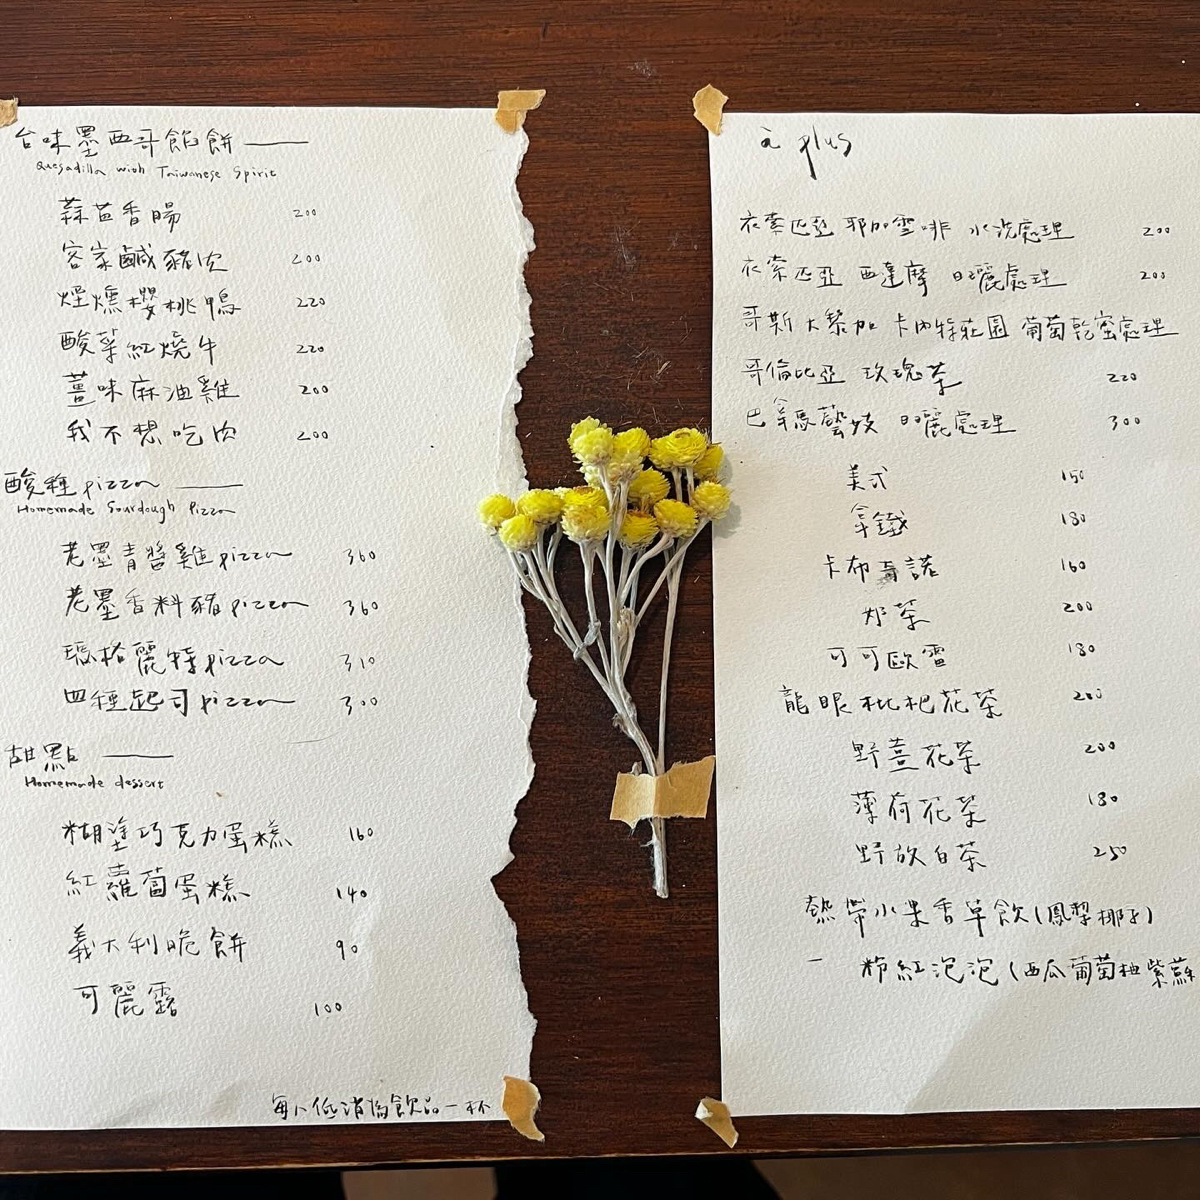 台味墨西哥餡餅
Quesadilla with Taiwanese Spirit
蒜苗香腸 200
客家鹹豬肉 200
煙燻櫻桃鴨 220
酸菜紅燒牛 220
薑味麻油雞 200
我不想吃肉 200
酸種pizza
Homemade Sourdough Pizza
老墨青醬雞pizza 360
老墨香料豬pizza 360
瑪格麗特pizza 310
四種起司pizza 300
甜點
Homemade dessert
糊塗巧克力蛋糕 160
紅蘿蔔蛋糕 140
義大利脆餅 90
可麗露 100
每人低消為飲品一杯
plus
衣索匹亞 耶加雪啡 水洗處理 200
衣索匹亞 西達摩 日曬處理 200
哥斯大黎加 卡內特莊園 葡萄乾蜜處理
哥倫比亞 玫瑰茶 220
巴拿馬藝妓 日曬處理 300
美式 150
拿鐵 180
卡布奇諾 160
200
可可歐蕾 180
龍眼枇杷花茶 200
野薑花茶 200
薄荷花茶 180
野放白茶 250
熱帶水果香草飲(鳳梨椰子)
粉紅泡泡(西瓜葡萄柚紫蘇